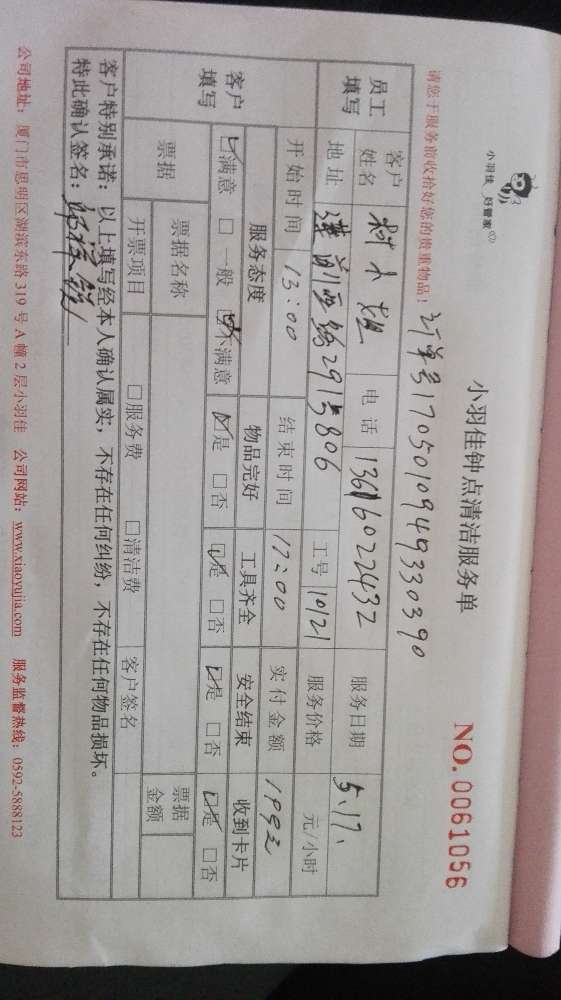 小羽佳 好管家
小羽佳钟点清洁服务单
NO. 0061056
请您于服务前收拾好您的贵重物品！订单号1705010949330390
员工填写 客户姓名 林小姐 电话 13616022432 服务日期 5.17.
地址 莲前西路291号806 工号 10121 服务价格 元/小时
开始时间 13:00 结束时间 17:00 实付金额 199元
客户填写 服务态度 物品完好 工具齐全 安全结束 收到卡片
☑满意 □一般 不满意 ☑是 □否 ☑是 □否 ☑是 □否 ☑是 □否
票据 票据名称 票据金额
开票项目 □服务费 □清洁费 客户签名
客户特别承诺：以上填写经本人确认属实，不存在任何纠纷，不存在任何物品损坏。
特此确认签名：
公司地址：厦门市思明区湖滨东路 319 号 A 幢 2 层小羽佳 公司网站：www.xiaoyujia.com 服务监督热线：0592-5888123